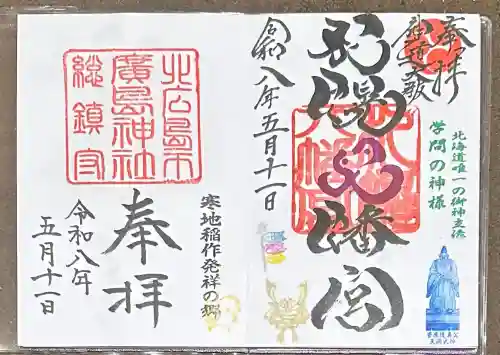 奉拝
北海道唯一の御神立像
学問の神様
菅原道真公
天満大神
札幌八幡宮
令和八年五月十一日
寒地稲作発祥の郷
奉拝
北広島市
廣島神社
総鎮守
令和八年
五月十一日